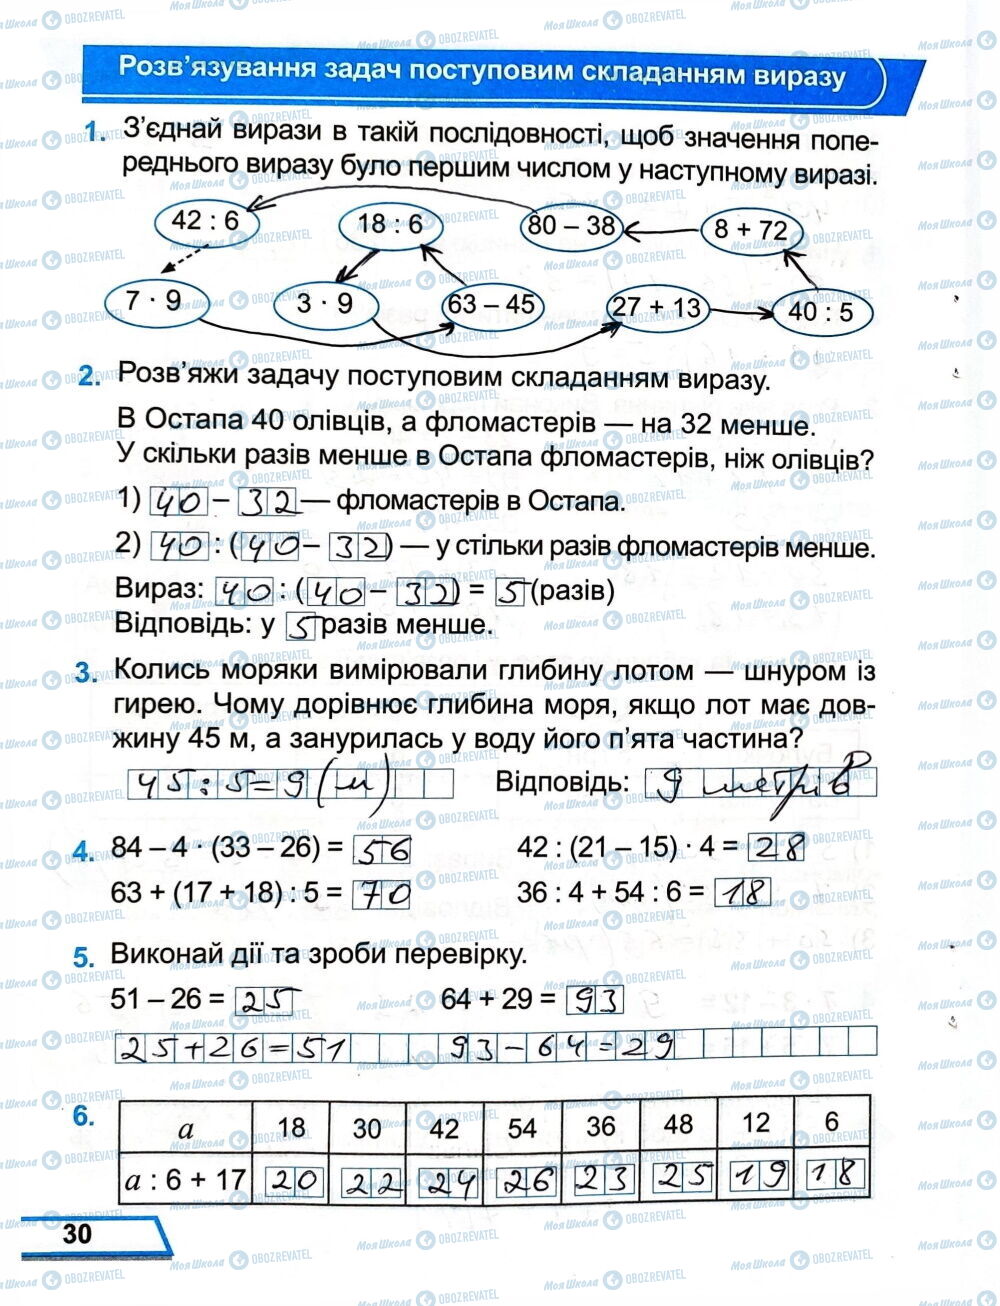 Розв’язування задач поступовим складанням виразу
1. З’єднай вирази в такій послідовності, щоб значення попе-
реднього виразу було першим числом у наступному виразі.
42 : 6 18 : 6 80 – 38 8 + 72
7 · 9 3 · 9 63 – 45 27 + 13 40 : 5
2. Розв’яжи задачу поступовим складанням виразу.
В Остапа 40 олівців, а фломастерів — на 32 менше.
У скільки разів менше в Остапа фломастерів, ніж олівців?
1) 40 – 32 — фломастерів в Остапа.
2) 40 : (40 – 32) — у стільки разів фломастерів менше.
Вираз: 40 : (40 – 32) = 5 (разів)
Відповідь: у 5 разів менше.
3. Колись моряки вимірювали глибину лотом — шнуром із
гирею. Чому дорівнює глибина моря, якщо лот має дов-
жину 45 м, а занурилась у воду його п’ята частина?
45 : 5 = 9 (м) Відповідь: 9 метрів
4. 84 – 4 · (33 – 26) = 56 42 : (21 – 15) · 4 = 28
63 + (17 + 18) : 5 = 70 36 : 4 + 54 : 6 = 18
5. Виконай дії та зроби перевірку.
51 – 26 = 25 64 + 29 = 93
25 + 26 = 51 93 – 64 = 29
6. a 18 30 42 54 36 48 12 6
a : 6 + 17 20 22 24 26 23 25 19 18
30
МояШкола OBOZREVATEL